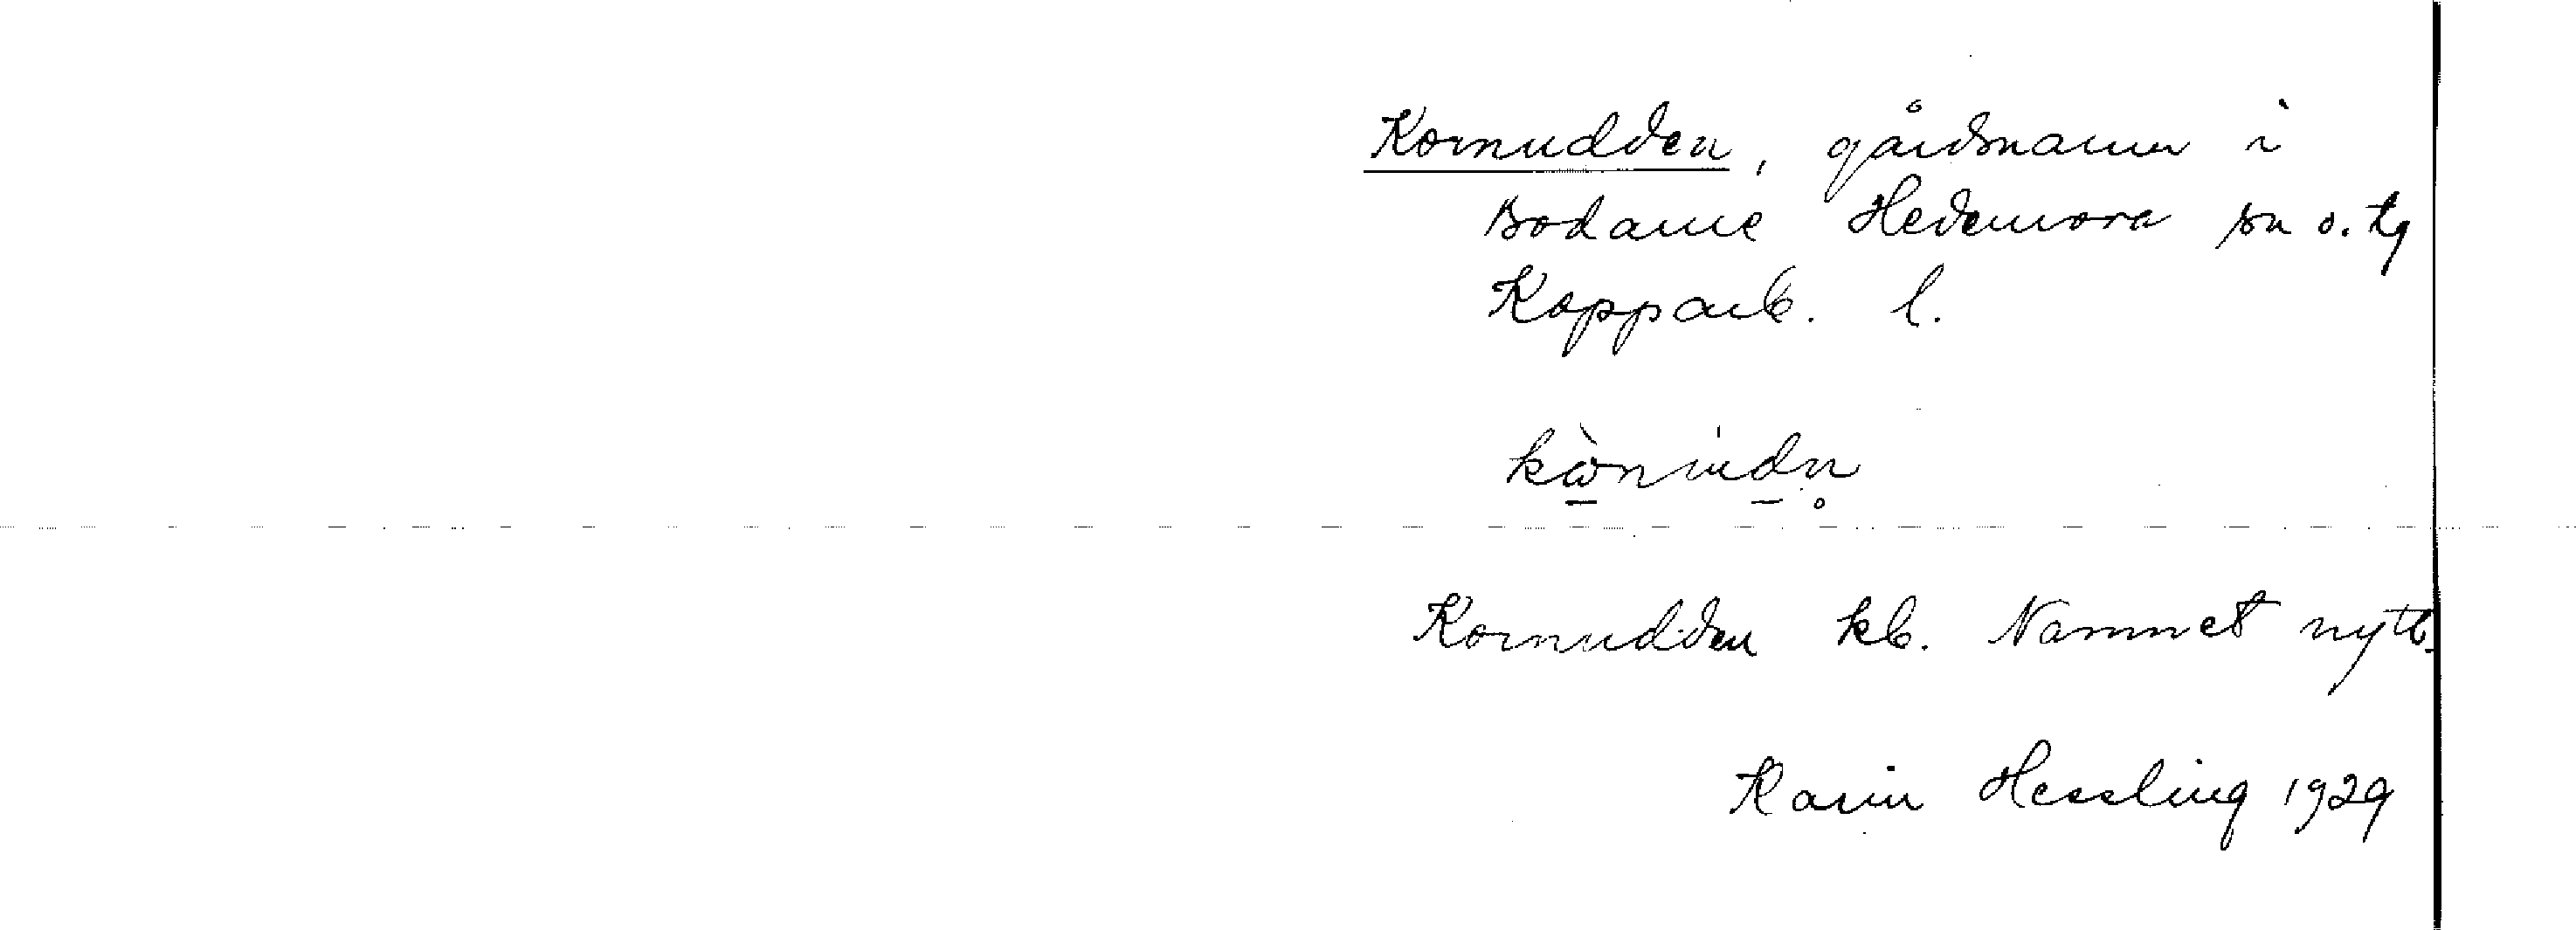 Kornudden, gårdsnamn i
Bodarne Hedemora sn o. tg
Kopparb. l.
Kornudden kb. Namnet nytt.
Karin Hessling 1929